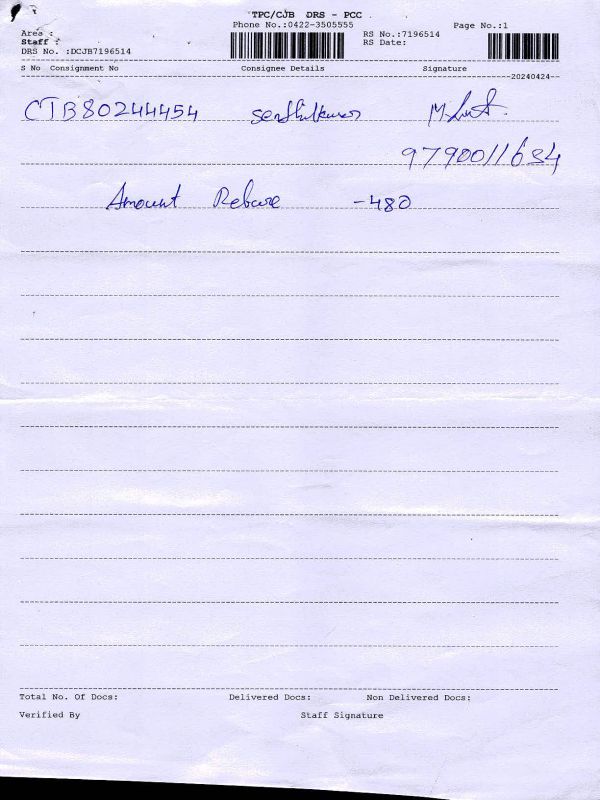 TPC/CJB DRS - PCC
Phone No.:0422-3505555
Page No.:1
Area :
RS No.:7196514
Staff :
RS Date:
DRS No. :DCJB7196514
S No Consignment No Consignee Details Signature
20240424
CJB80244454 Senthilkumar
9790011634
Amount Rebare -480
Total No. Of Docs: Delivered Docs: Non Delivered Docs:
Verified By Staff Signature